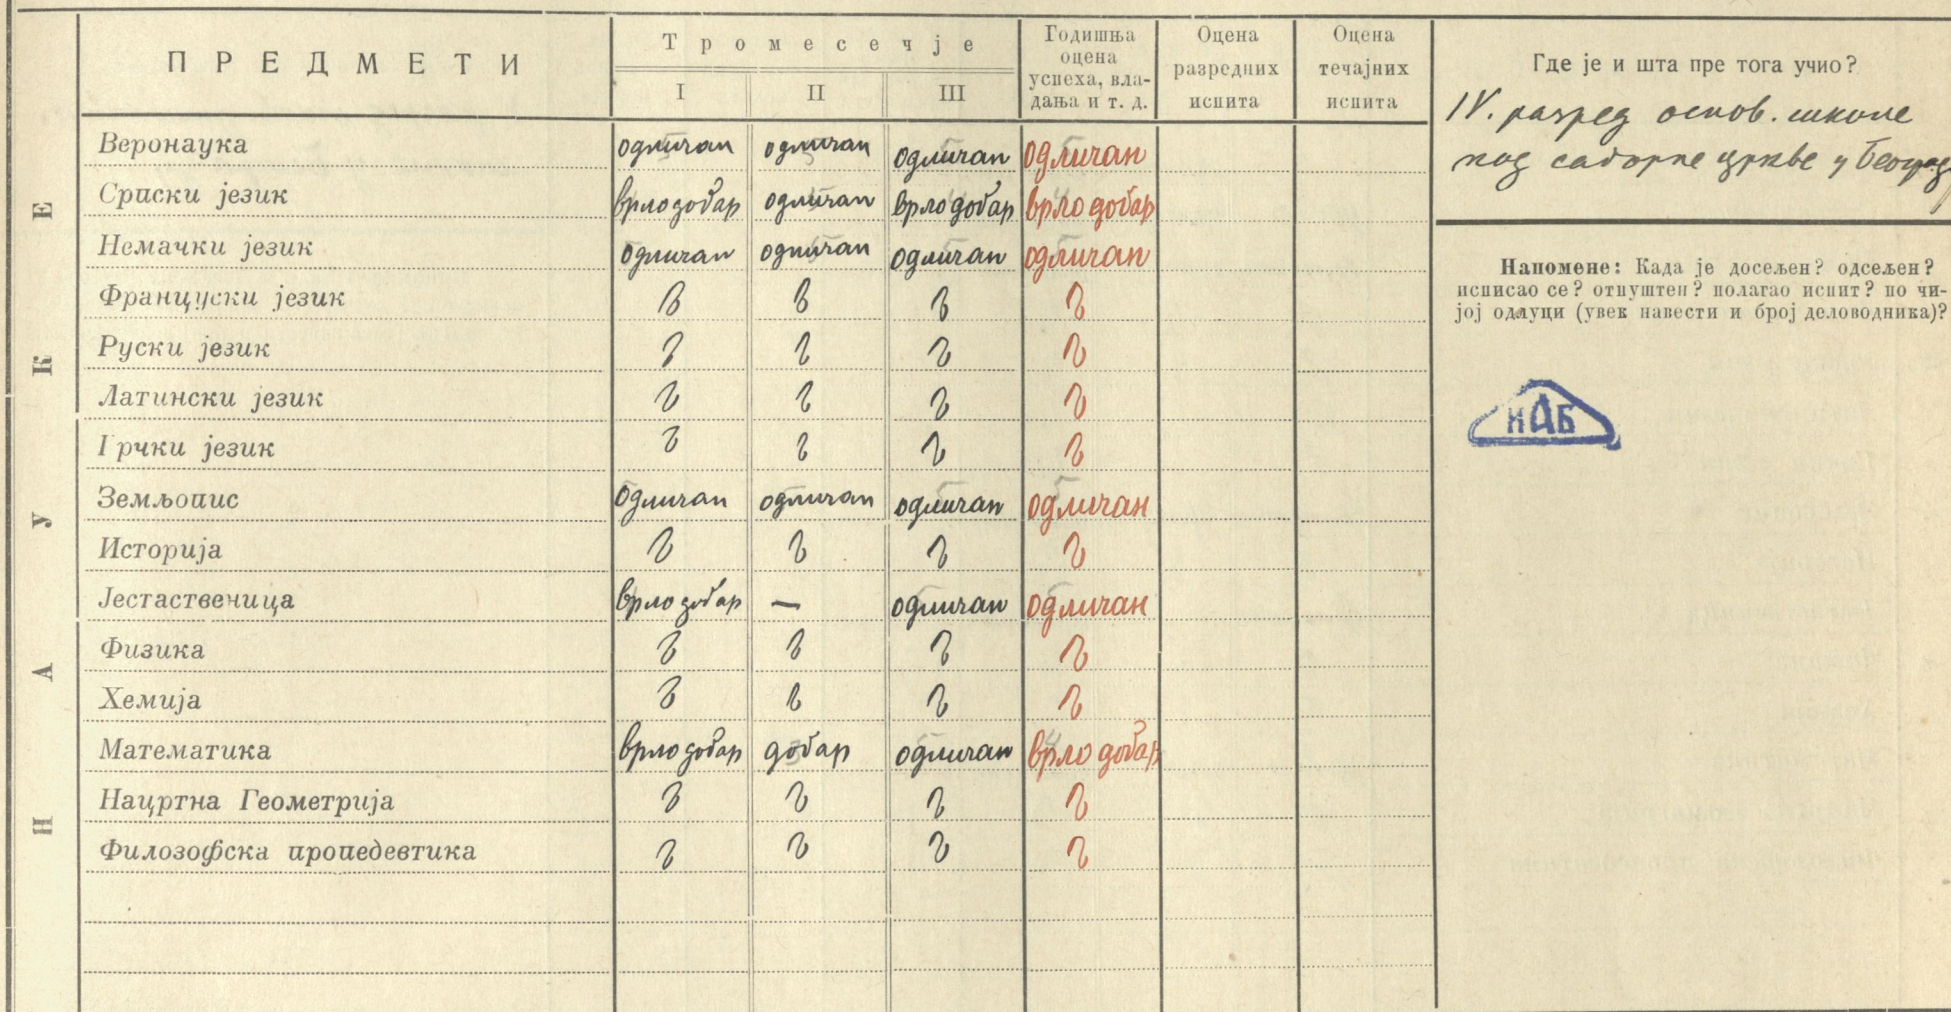 НАУКЕ
ПРЕДМЕТИ
Тромесечје
I II III
Годишња
оцена
успеха, вла-
дања и т. д.
Оцена
разредних
испита
Оцена
течајних
испита
Веронаука одличан одличан одличан одличан
Српски језик врло добар одличан врло добар врло добар
Немачки језик одличан одличан одличан одличан
Француски језик
Руски језик
Латински језик
Грчки језик
Земљопис одличан одличан одличан одличан
Историја
Јестаственица врло добар — одличан одличан
Физика
Хемија
Математика врло добар добар одличан врло добар
Нацртна Геометрија
Филозофска пропедевтика
Где је и шта пре тога учио?
IV. разред основ. школе
код саборне цркве у Београд
Напомене: Када је досељен? одсељен?
исписао се? отпуштен? полагао испит? по чи-
јој одлуци (увек навести и број деловодника)?
ИАБ